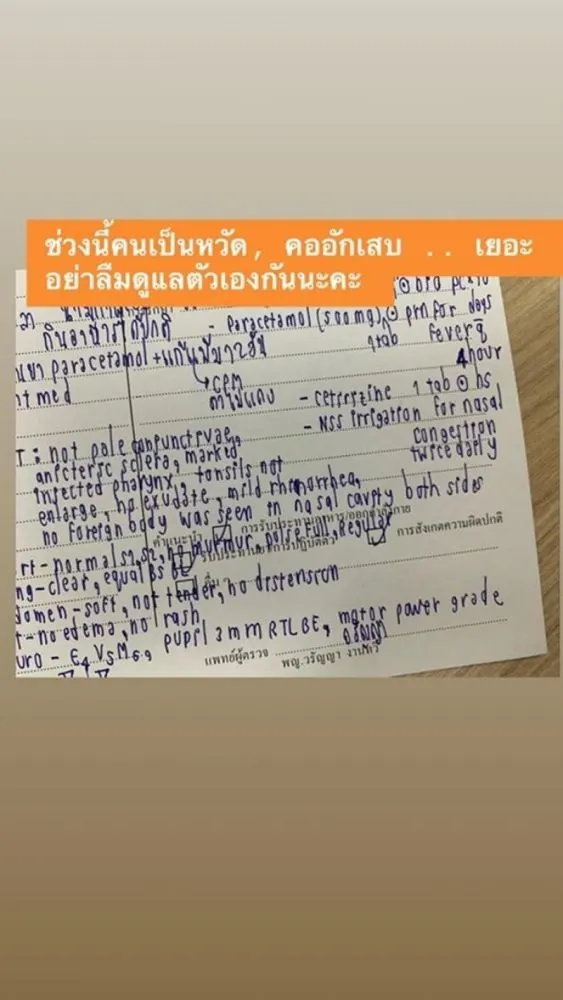 ช่วงนี้คนเป็นหวัด, คออักเสบ .. เยอะ
อย่าลืมดูแลตัวเองกันนะคะ
กินอาหารได้ปกติ - paracetamol (500 mg) prn for days
paracetamol + แก้แพ้มา 2 วัน 1 tab fever q
nt med CPM 4 hour
ตาไม่แดง - cetirizine 1 tab hs
T: not pale conjunctivae, - NSS irrigation for nasal
anicteric sclera, marked congestion
injected pharynx, tonsils not twice daily
enlarge, no exudate, mild rhinorrhea,
no foreign body was seen in nasal cavity both sides
คำแนะนำ การรับประทานอาหาร/ออกกำลังกาย
rt - normal s1, s2, no murmur, pulse full, regular
การสังกตความผิดปกติ
ng - clear, equal BS
อื่นๆ
domen - soft, not tender, no distension
t - no edema, no rash
uro - E4V5M6, pupil 3 mm RTLBE, motor power grade
แพทย์ผู้ตรวจ พญ.วรัญญา งามทวี